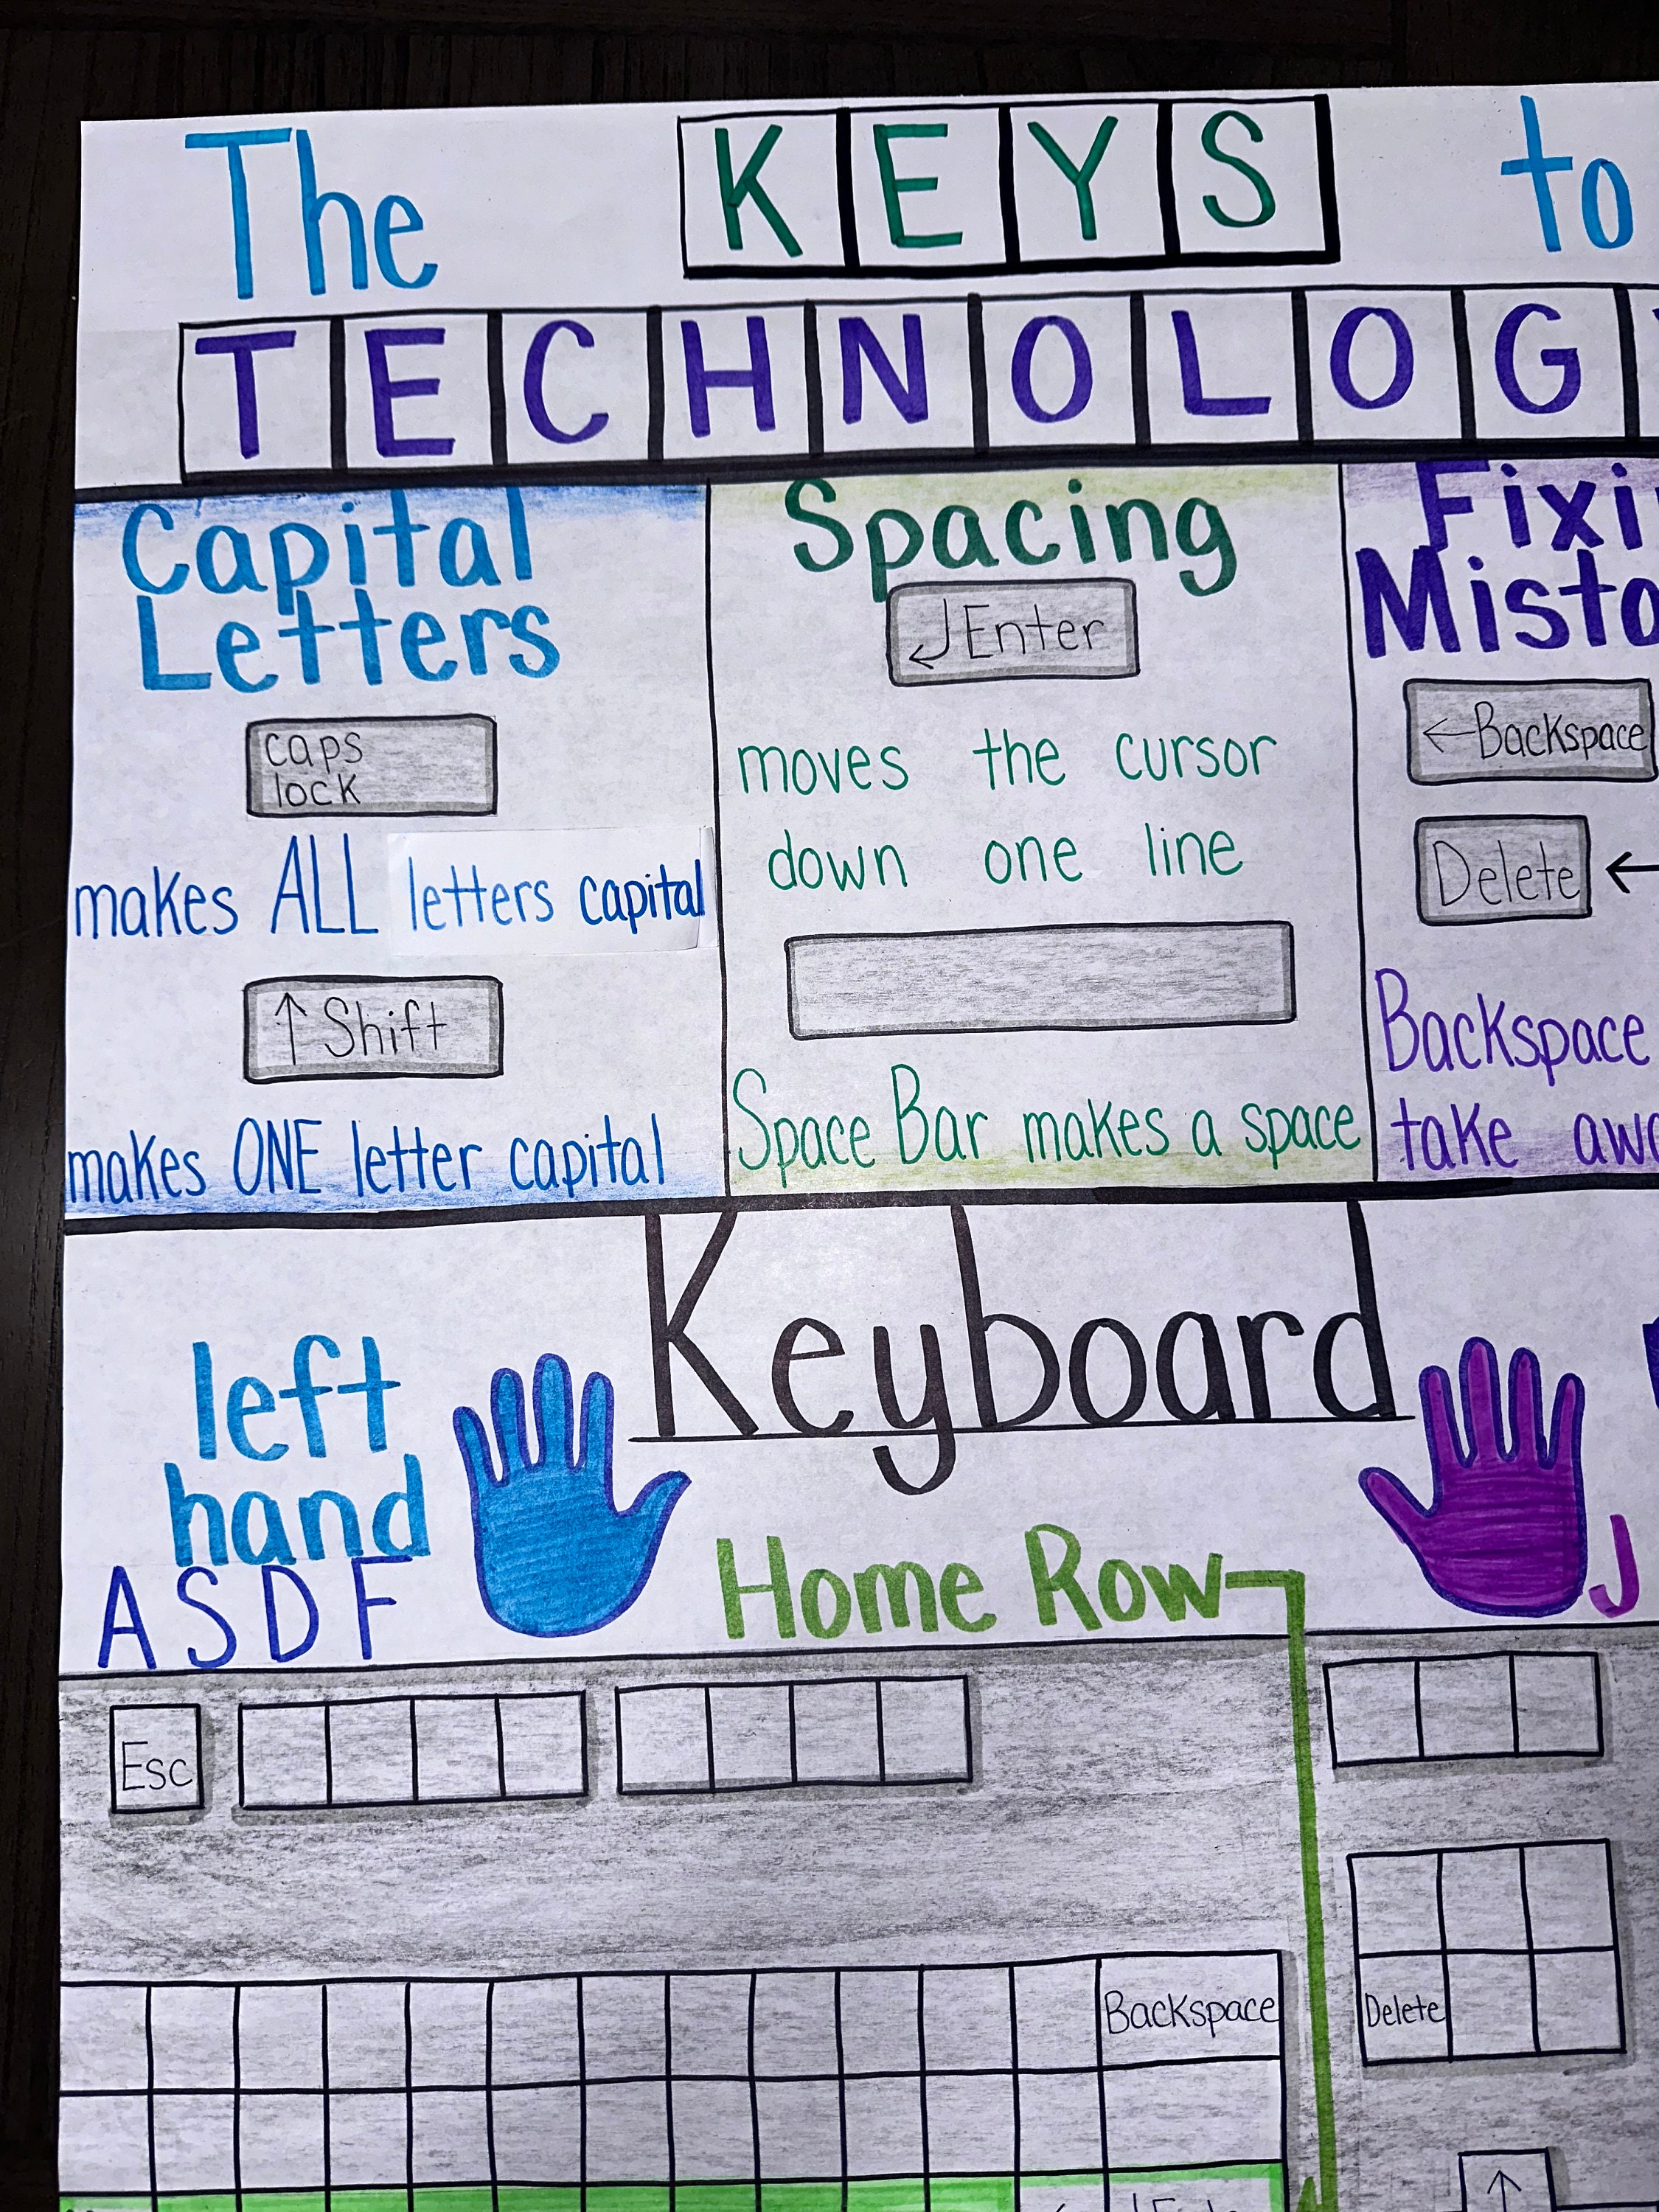 The KEYS to
TECHNOLOG
Capital
Letters
caps
lock
makes ALL letters capital
↑ Shift
makes ONE letter capital
Spacing
↲ Enter
moves the cursor
down one line
Space Bar makes a space
Fixi
Mista
← Backspace
Delete ←
Backspace
take awa
Keyboard
left
hand
A S D F
Home Row
J
Esc
Backspace
Delete
↑